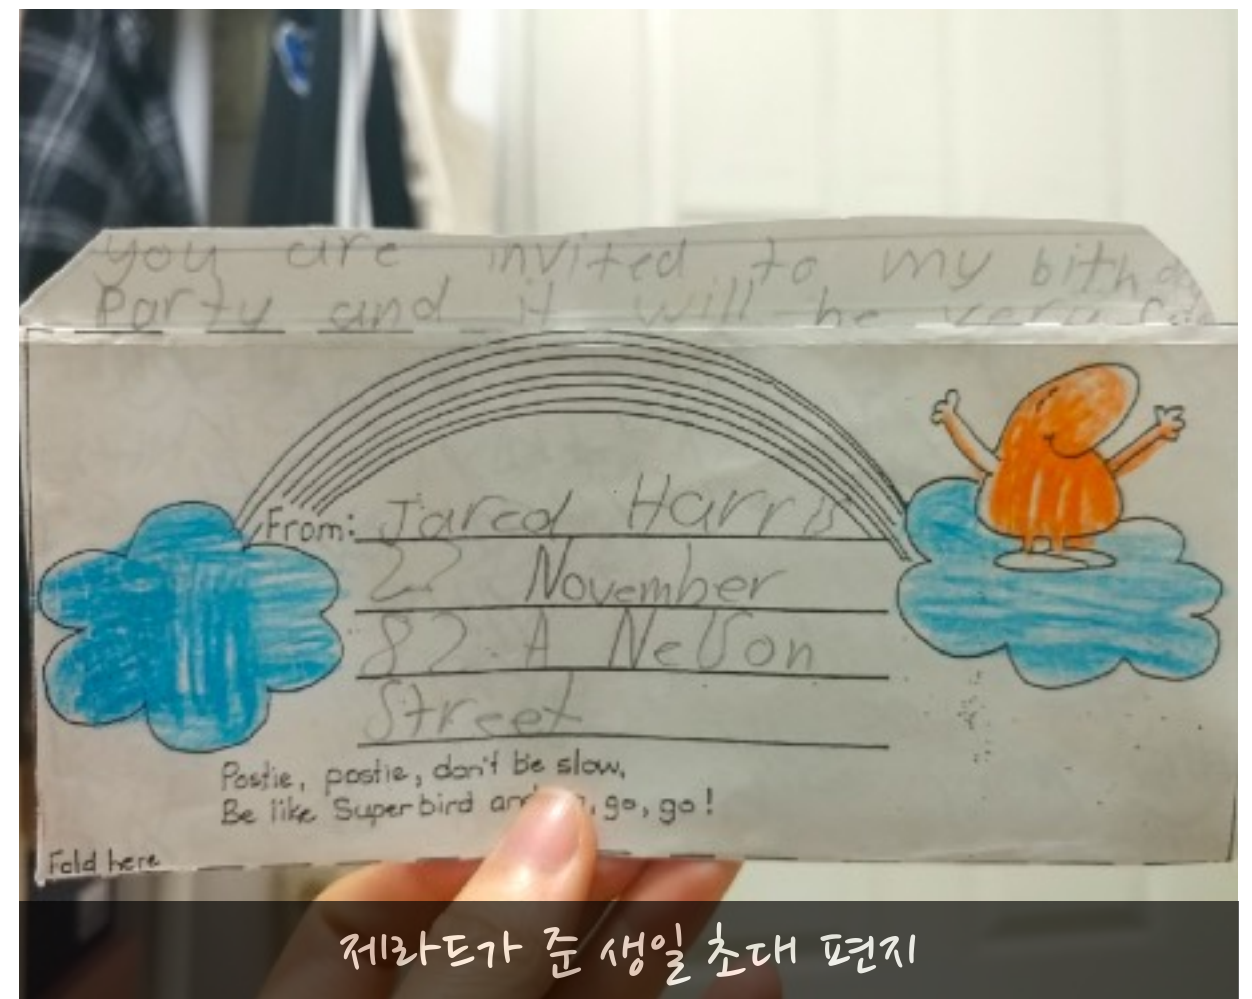 you are invited to my bithd
Party and it will be very
From: Jared Harris
22 November
82 A Nelson
Street
Postie, postie, don't be slow,
Be like Superbird and go, go!
Fold here
제라드가 준 생일 초대 편지